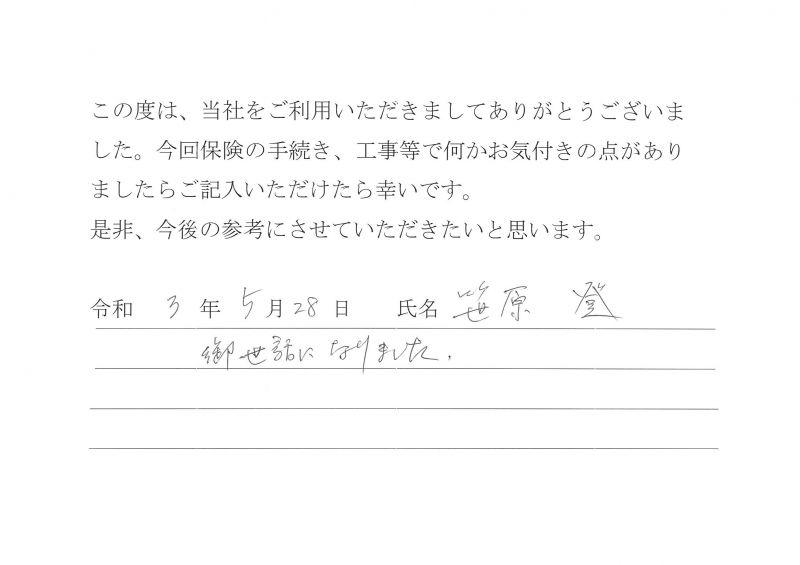 この度は、当社をご利用いただきましてありがとうございま
した。今回保険の手続き、工事等で何かお気付きの点があり
ましたらご記入いただけたら幸いです。
是非、今後の参考にさせていただきたいと思います。
令和 3 年 5 月 28 日 氏名 笹原 登
御世話になりました.